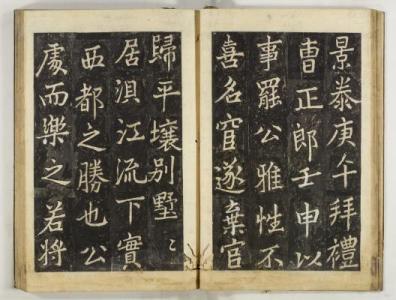 景泰庚午拜禮
曺正郎壬申以
事罷公雅性不
喜名宦遂棄官
歸平壤別墅々
居浿江流下實
西都之勝也公
處而樂之若將